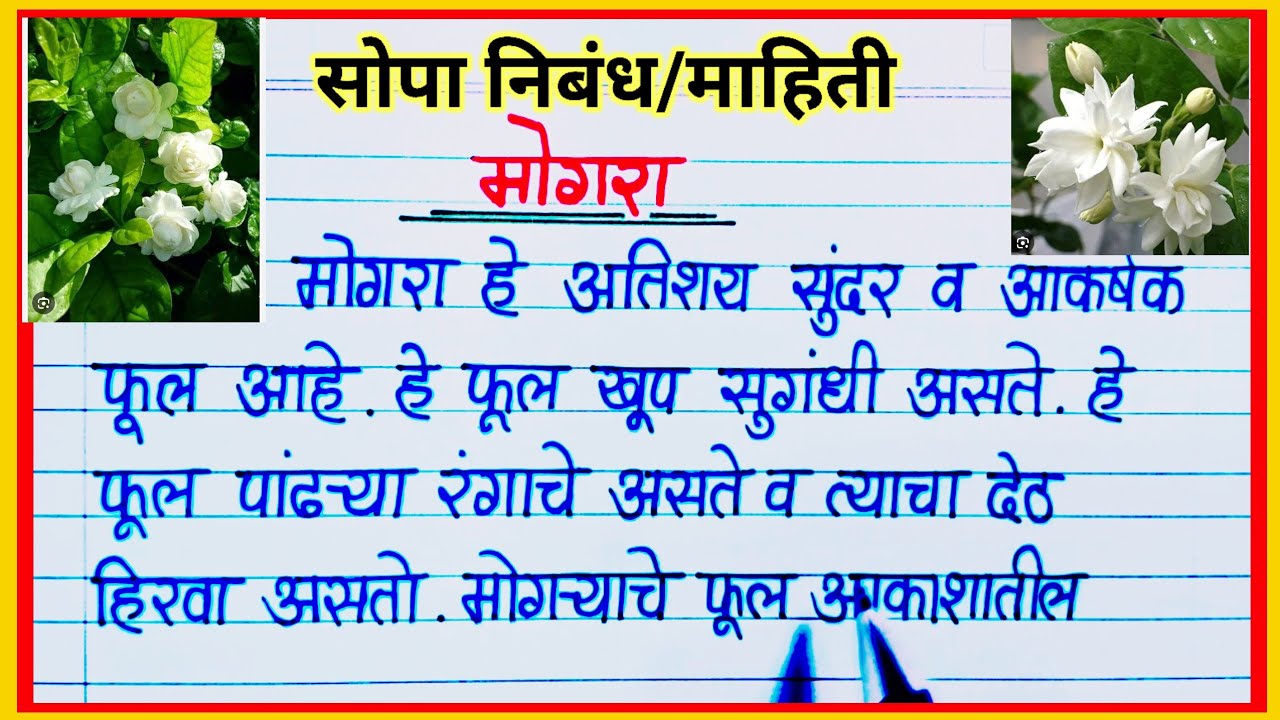 सोपा निबंध/माहिती
मोगरा
मोगरा हे अतिशय सुंदर व आकर्षक
फूल आहे. हे फूल खूप सुगंधी असते. हे
फूल पांढऱ्या रंगाचे असते व त्याचा देठ
हिरवा असतो. मोगऱ्याचे फूल आकाशातील